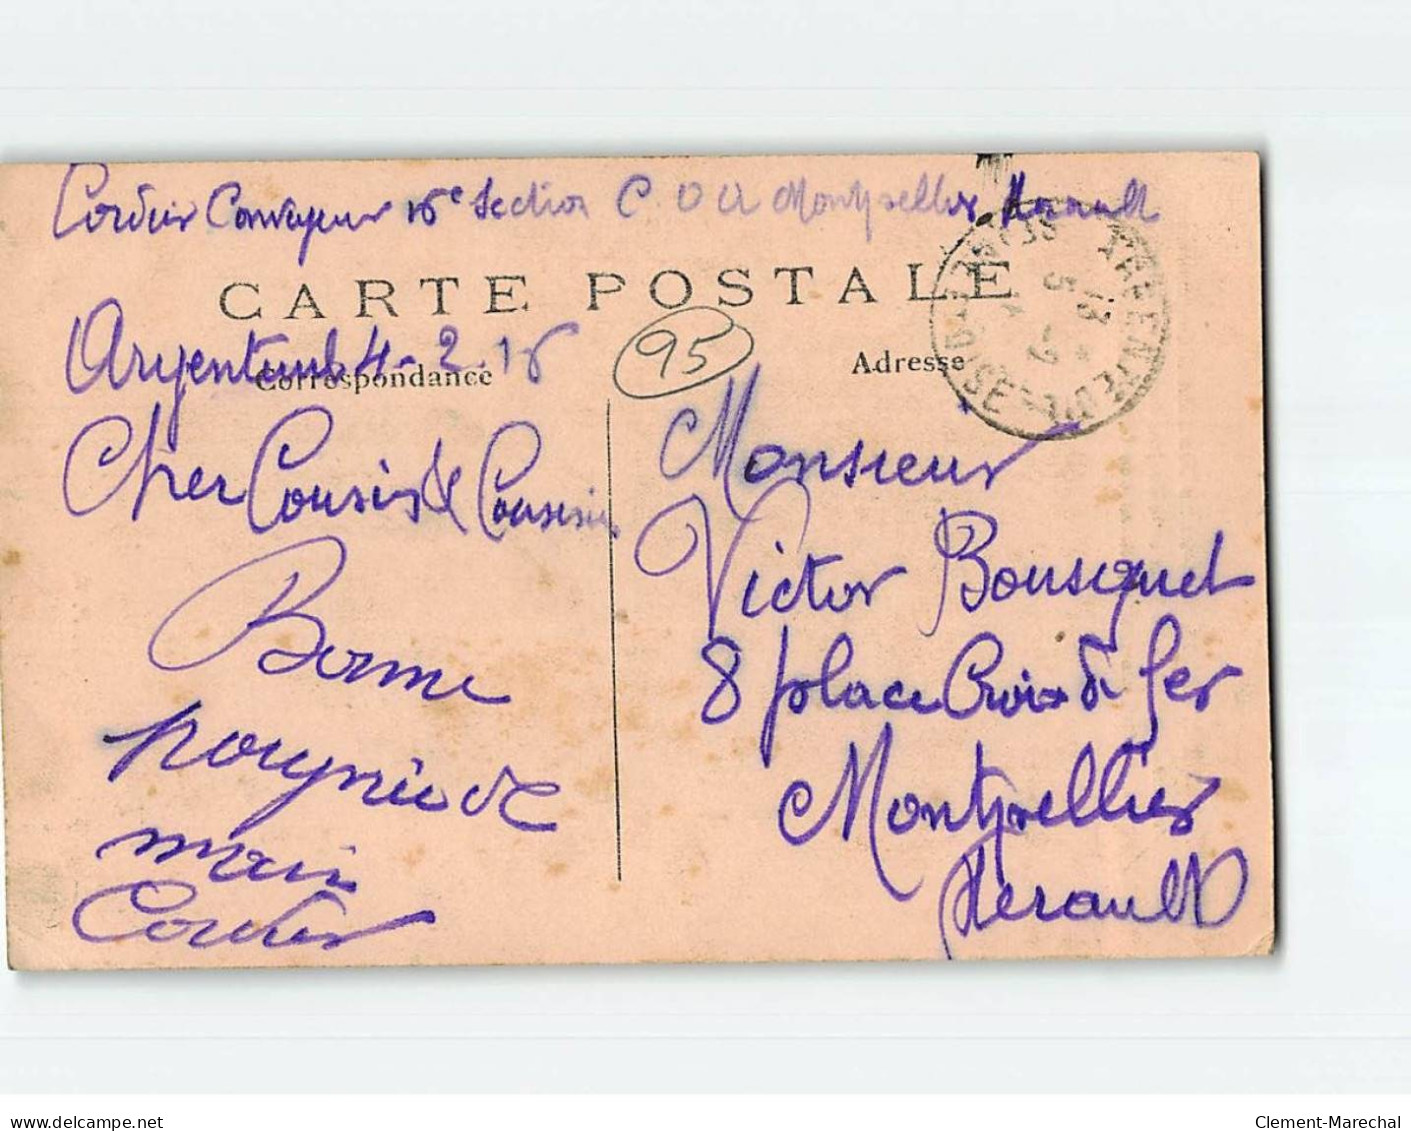 Cordier Convoyeur 16e Section C O A Montpellier Herault
CARTE POSTALE
Argenteuil 4-2.16
Correspondance
95
Adresse
Cher Cousin & Cousine
Bonne
poignée de
main
Cordier
Monsieur
Victor Bousquet
8 place Croix de fer
Montpellier
Herault
ARGENTEUIL
SEINE-ET-OISE
www.delcampe.net
Clement-Marechal